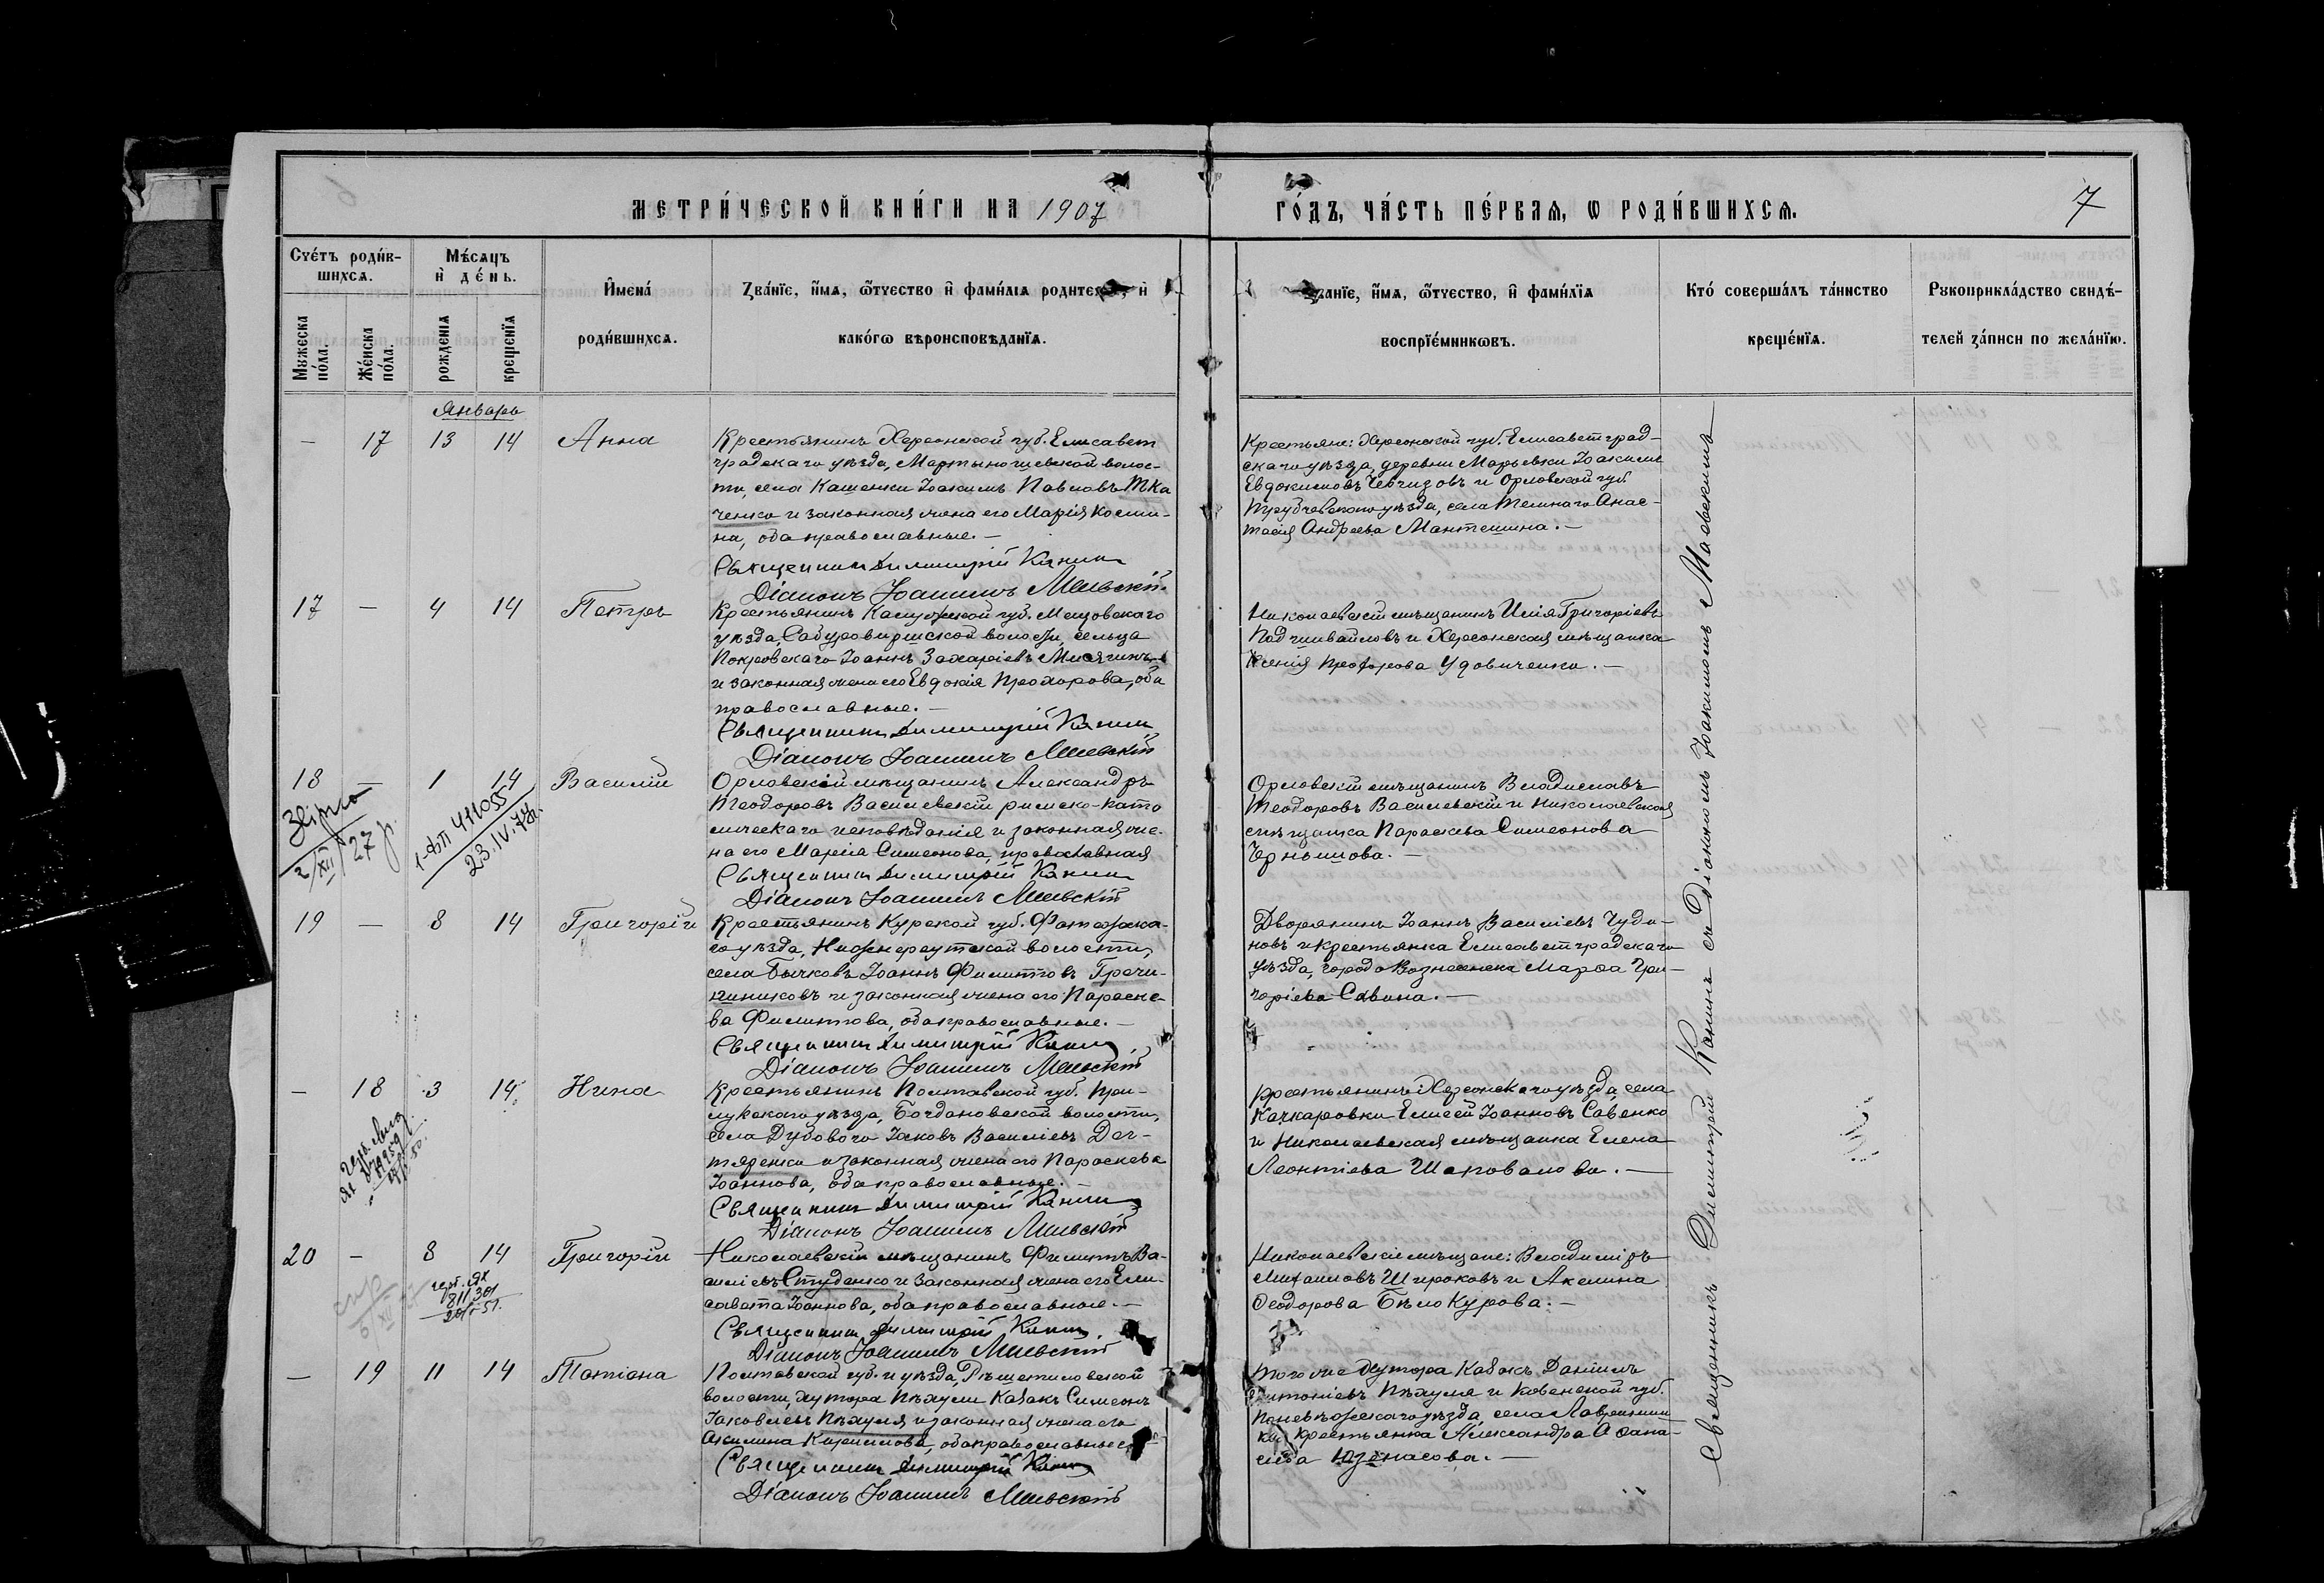 МЕТРИ́ЧЕСКОЙ КНИ́ГИ НА 1907
ГО́ДЪ, ЧА́СТЬ ПЕ́РВАѦ, Ѡ РОДИ́ВШИХСѦ.
7
Счє́тъ роди́в-
шихсѧ.
Мꙋжеска по́ла.
Же́нска по́ла.
Мѣ́сѧцъ
и҆ де́нь.
рожденїѧ
крещенїѧ
И҆мена́
роди́вшихсѧ.
Ꙁва́нїе, и҆́мѧ, ѻ҆́тчество и҆ фамі́лїѧ родителей, и҆
како́гѡ вѣроисповѣданїѧ.
Ꙁванїе, и҆́мѧ, ѻ҆́тчество, и҆ фами́лїѧ
воспрїе́мникѡвъ.
Кто́ соверша́лъ та́инство
креще́нїѧ.
Рꙋкоприкла́дство свидѣ́-
телей ꙁа́писи по жела́нїю.
Январь
— 17 13 14 Анна
Крестьянинъ Херсонской губ. Елисавет
градскаго уѣзда, Мартыношевской волос-
ти, села Кашенки Іоакимъ Павловъ Тка
ченко и законная жена его Марія Косми-
на, оба православные. —
Священникъ Димитрій Канинъ
Діаконъ Іоакимъ Маевскій.
Крестьяне: Херсонской губ. Елисаветград-
скаго уѣзда, деревни Марьевки Іоакимъ
Евдокимовъ и Орловской губ
Трубчевскаго уѣзда, села Темнаго Анас-
тасія Андреева Мантешина. —
17 — 4 14 Петръ
Крестьянинъ Калужской губ. Мещовскаго
уѣзда, волости, сельца
Покровскаго Іоаннъ Захаріевъ
и законная жена его Евдокія Прохорова, оба
православные. —
Священникъ Димитрій Канинъ
Діаконъ Іоакимъ Маевскій
Николаевскій мѣщанинъ Илія Григоріевъ
и Херсонская мѣщанка
Ксенія Прохорова Удовиченко. —
18 — 1 14 Василій
2/XII 27 г.
1-ФП 411055
23.IV.74г.
Орловскій мѣщанинъ Александръ
Теодоровъ Василевскій римско-като
лическаго исповѣданія и законная же-
на его Марія Симеонова, православная
Священникъ Димитрій Канинъ
Діаконъ Іоакимъ Маевскій
Орловскій мѣщанинъ Владиславъ
Теодоровъ Василевскій и Николаевская
мѣщанка Параскева Симеонова
Чернышова. —
19 — 8 14 Григорій
Крестьянинъ Курской губ. Фатежска-
го уѣзда, Нижнереутской волости,
села Бычковъ Іоаннъ Филипповъ Гречи-
шниковъ и законная жена его Параске-
ва Филиппова, оба православные. —
Священникъ Димитрій Канинъ
Діаконъ Іоакимъ Маевскій
Дворянинъ Іоаннъ Василіевъ Чуди-
новъ и крестьянка Елисаветградскаго
уѣзда, города Вознесенска Марѳа Гри-
горіева Савина. —
— 18 3 14 Нина
Крестьянинъ Полтавской губ. При-
лукскаго уѣзда, Богдановской волости,
села Дубоваго Іаковъ Василіевъ Дег-
тяренко и законная жена его Параскева
Іоаннова, оба православные. —
Священникъ Димитрій Канинъ
Діаконъ Іоакимъ Маевскій
Крестьянинъ Херсонскаго уѣзда, села
Качкаровки Елисей Іоанновъ Савенко
и Николаевская мѣщанка Елена
Леонтіева Шаповалова. —
20 — 8 14 Григорій
811301
Николаевскій мѣщанинъ Филиппъ Ва-
силіевъ Студенко и законная жена его Ели-
савета Іоаннова, оба православные. —
Священникъ Димитрій Канинъ
Діаконъ Іоакимъ Маевскій
Николаевскіе мѣщане: Владиміръ
Михаиловъ Широковъ и Акилина
Ѳеодорова Бѣлокурова. —
— 19 11 14 Татіана
Полтавской губ. и уѣзда, Рѣшетиловской
волости, хутора Пѣхули Казакъ Симеонъ
Іаковлевъ Пѣхуля и законная жена его
Акилина Кириллова, оба православные. —
Священникъ Димитрій Канинъ
Діаконъ Іоакимъ Маевскій
Того же хутора Казакъ Даніилъ
Антоніевъ Пѣхуля и Ковенской губ.
Поневѣжскаго уѣзда, села
крестьянка Александра Аѳана-
сіева Юзонасова. —
Священникъ Димитрій Канинъ съ Діакономъ Іоакимомъ Маевскимъ